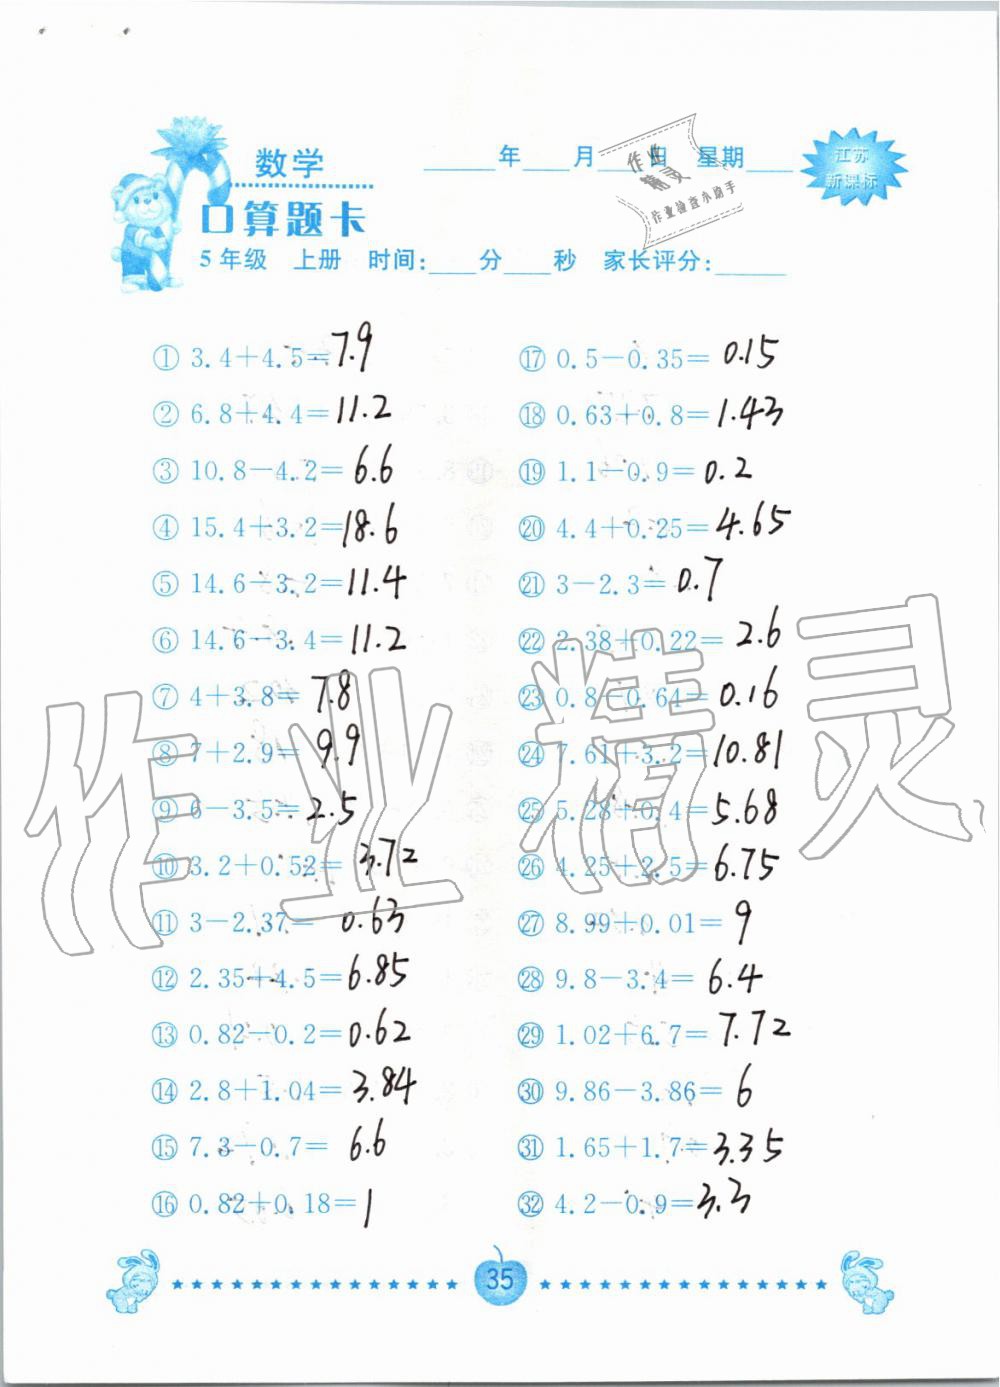 数学
____年____月____日 星期____
江苏
新课标
作业
精灵
作业检查小助手
口算题卡
5年级 上册 时间:____分____秒 家长评分:______
① 3.4+4.5=7.9
② 6.8+4.4=11.2
③ 10.8-4.2=6.6
④ 15.4+3.2=18.6
⑤ 14.6-3.2=11.4
⑥ 14.6-3.4=11.2
⑦ 4+3.8=7.8
⑧ 7+2.9=9.9
⑨ 6-3.5=2.5
⑩ 3.2+0.52=3.72
⑪ 3-2.37=0.63
⑫ 2.35+4.5=6.85
⑬ 0.82-0.2=0.62
⑭ 2.8+1.04=3.84
⑮ 7.3-0.7=6.6
⑯ 0.82+0.18=1
⑰ 0.5-0.35=0.15
⑱ 0.63+0.8=1.43
⑲ 1.1-0.9=0.2
⑳ 4.4+0.25=4.65
㉑ 3-2.3=0.7
㉒ 2.38+0.22=2.6
㉓ 0.8-0.64=0.16
㉔ 7.61+3.2=10.81
㉕ 5.28+0.4=5.68
㉖ 4.25+2.5=6.75
㉗ 8.99+0.01=9
㉘ 9.8-3.4=6.4
㉙ 1.02+6.7=7.72
㉚ 9.86-3.86=6
㉛ 1.65+1.7=3.35
㉜ 4.2-0.9=3.3
作业精灵
35